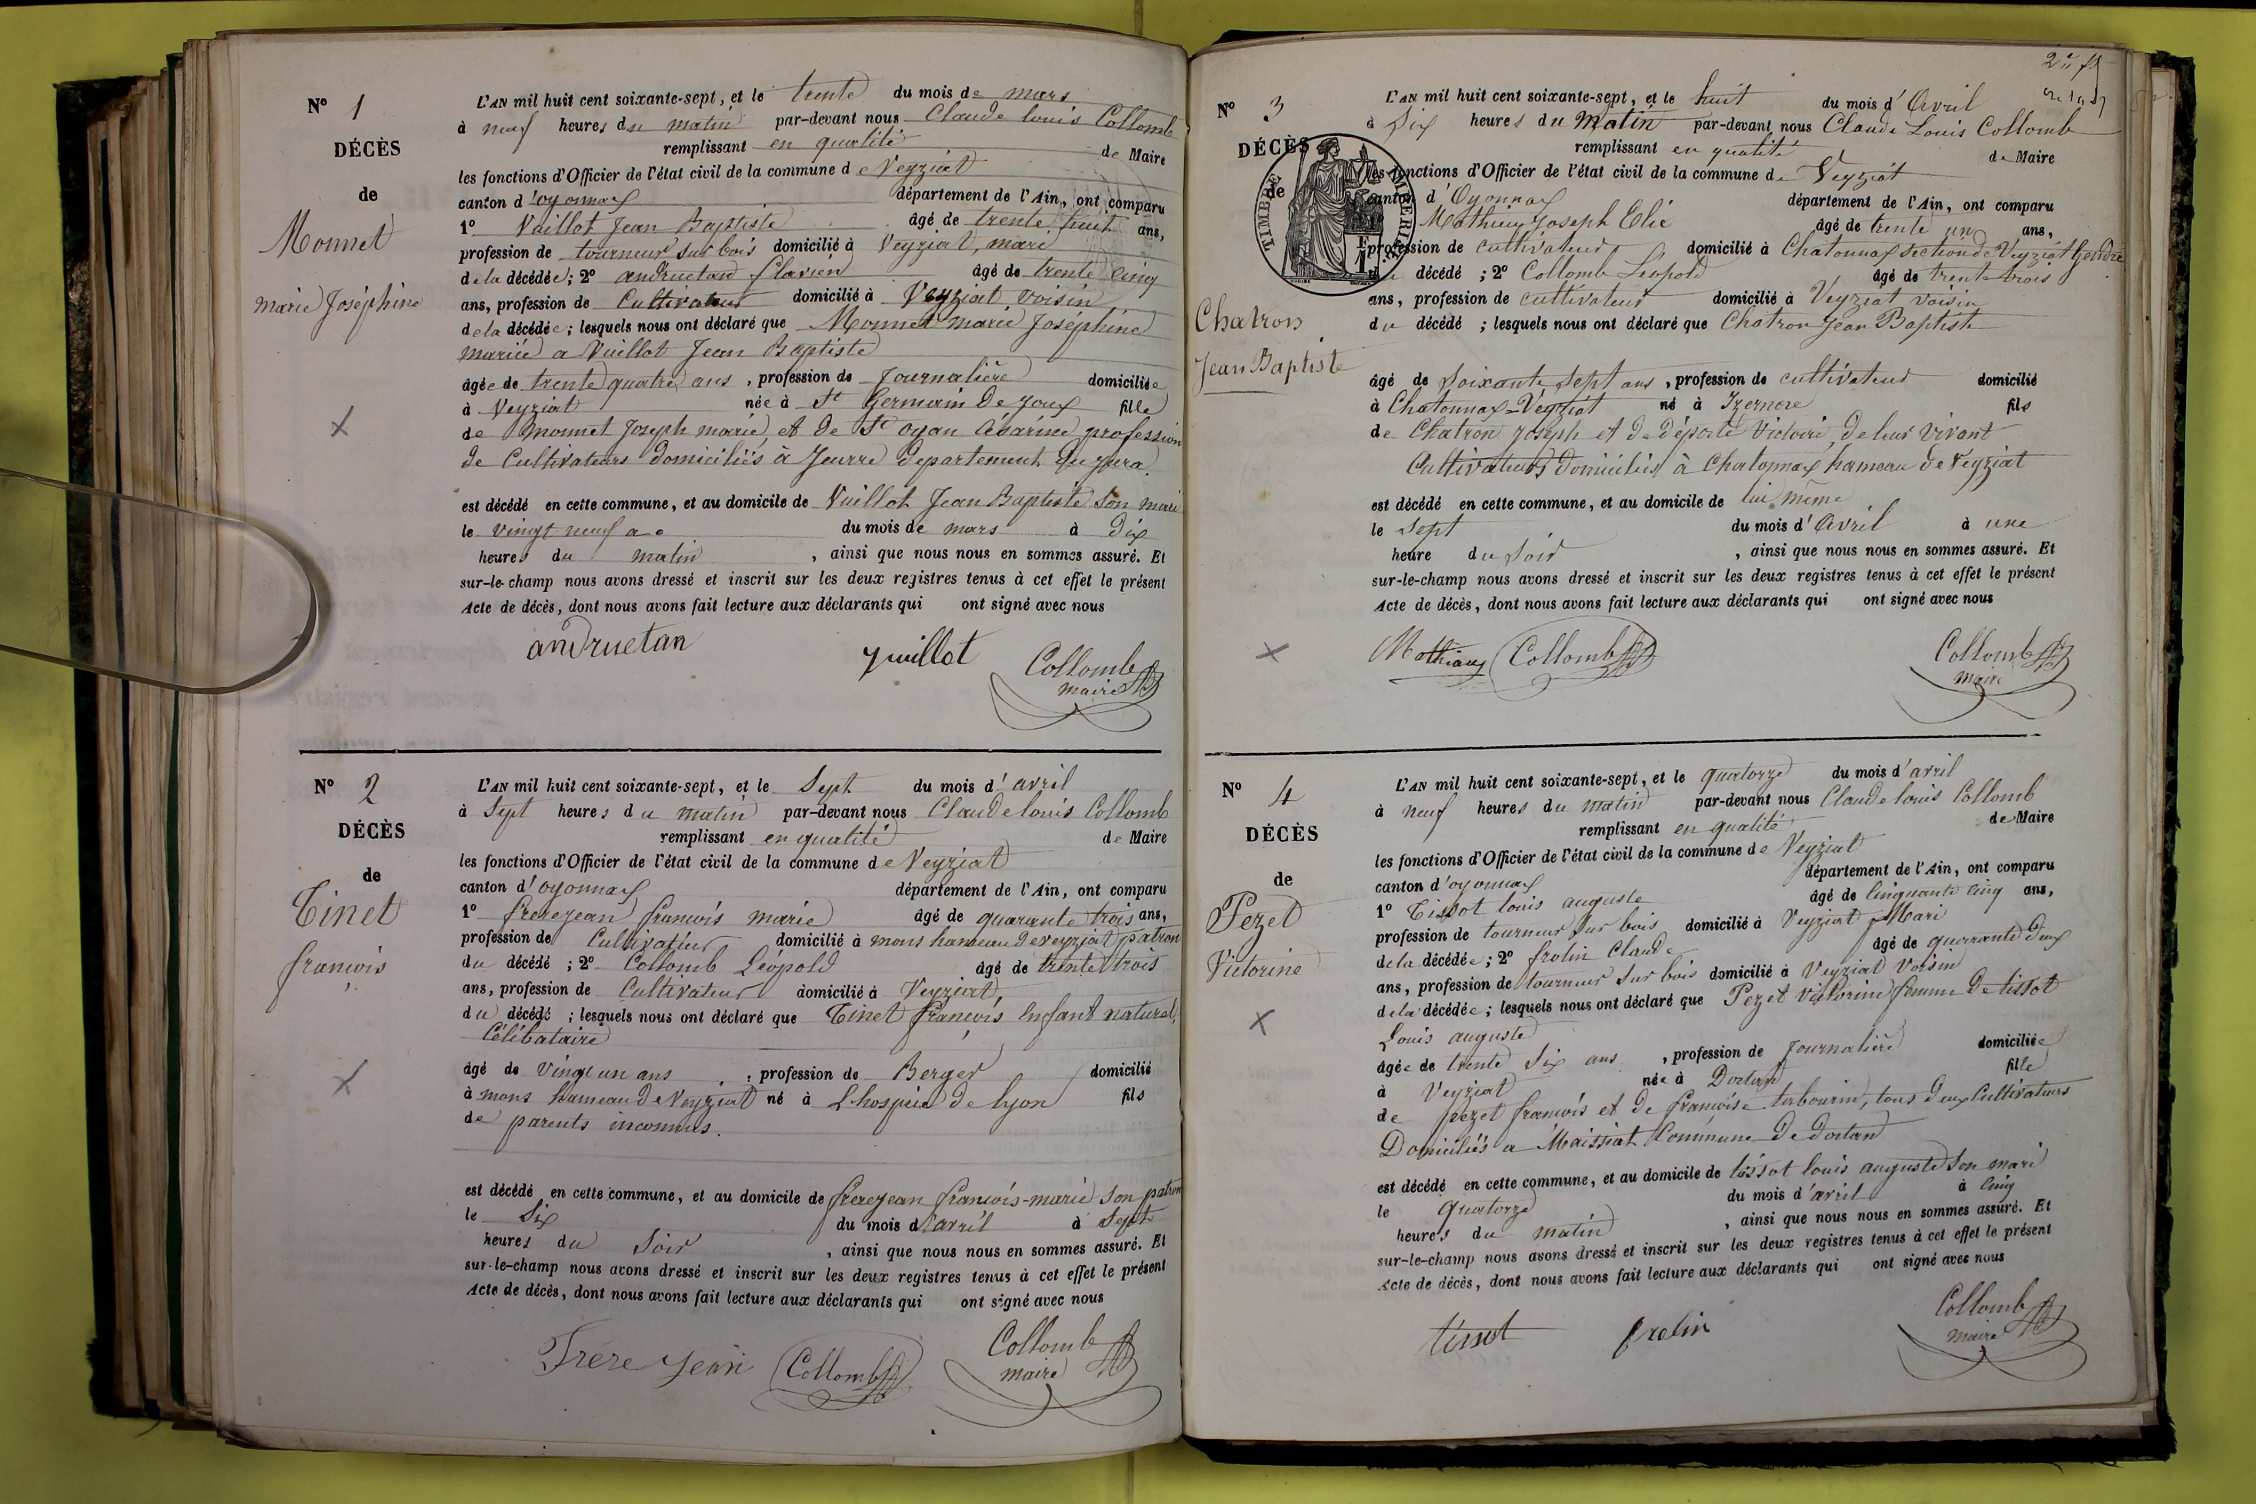 N° 1
DÉCÈS
de
Monnet
marie Joséphine
L'AN mil huit cent soixante-sept, et le trente du mois de mars
à neuf heures du matin par-devant nous Claude louis Collomb
remplissant en qualité de Maire
les fonctions d'Officier de l'état civil de la commune de Veyziat
canton d'oyonnax département de l'Ain, ont comparu
1° Vuillot Jean Baptiste âgé de trente huit ans,
profession de tourneur sur bois domicilié à Veyziat, mari
de la décédée; 2° andruetan flavien âgé de trente cinq
ans, profession de Cultivateur domicilié à Veyziat, voisin
de la décédée; lesquels nous ont déclaré que Monnet marie Joséphine
mariée a Vuillot Jean Baptiste
âgée de trente quatre ans, profession de Journalière domiciliée
à Veyziat née à St Germain de Joux fille
de Monnet Joseph marié et de St oyan Césarine profession
de Cultivateurs domiciliés à Jeurre departement du jura.
est décédé en cette commune, et au domicile de Vuillot Jean Baptiste son mari
le vingt neuf du mois de mars à dix
heures du matin, ainsi que nous nous en sommes assuré. Et
sur-le-champ nous avons dressé et inscrit sur les deux registres tenus à cet effet le présent
Acte de décès, dont nous avons fait lecture aux déclarants qui ont signé avec nous
andruetan vuillot Collomb
maire
N° 2
DÉCÈS
de
Tinet
françois
L'AN mil huit cent soixante-sept, et le Sept du mois d'avril
à Sept heures du matin par-devant nous Claude louis Collomb
remplissant en qualité de Maire
les fonctions d'Officier de l'état civil de la commune de Veyziat
canton d'oyonnax département de l'Ain, ont comparu
1° frerejean françois marie âgé de quarante trois ans,
profession de Cultivateur domicilié à mons hameau de veyziat patron
du décédé; 2° Collomb Léopold âgé de trente trois
ans, profession de Cultivateur domicilié à Veyziat,
du décédé; lesquels nous ont déclaré que Tinet françois, enfant naturel,
Célibataire
âgé de Vingt un ans, profession de Berger domicilié
à mons hameau de Veyziat né à L'hospice de lyon fils
de parents inconnus.
est décédé en cette commune, et au domicile de frerejean françois-marie son patron
le Six du mois d'avril à Sept
heures du Soir, ainsi que nous nous en sommes assuré. Et
sur-le-champ nous avons dressé et inscrit sur les deux registres tenus à cet effet le présent
Acte de décès, dont nous avons fait lecture aux déclarants qui ont signé avec nous
Frére jean Collomb Collomb
maire
N° 3
DÉCÈS
de
TIMBRE IMPÉRIAL
Chatron
Jean Baptiste
L'AN mil huit cent soixante-sept, et le huit du mois d'Avril
à Dix heures du Matin par-devant nous Claude Louis Collomb
remplissant en qualité de Maire
les fonctions d'Officier de l'état civil de la commune de Veyziat
canton d'Oyonnax département de l'Ain, ont comparu
Mathieux Joseph Elie âgé de trente un ans,
profession de cultivateur domicilié à Chatonnax section de Veyziat Gendre
du décédé; 2° Collomb Léopold âgé de trente trois
ans, profession de cultivateur domicilié à Veyziat voisin
du décédé; lesquels nous ont déclaré que Chatron Jean Baptiste
âgé de Soixante Sept ans, profession de cultivateur domicilié
à Chatonnax-Veyziat né à Izernore fils
de Chatron Joseph et de Victoire, de leur vivant
Cultivateurs domiciliés à Chatonnax hameau de Veyziat
est décédé en cette commune, et au domicile de lui même
le Sept du mois d'Avril à une
heure du Soir, ainsi que nous nous en sommes assuré. Et
sur-le-champ nous avons dressé et inscrit sur les deux registres tenus à cet effet le présent
Acte de décès, dont nous avons fait lecture aux déclarants qui ont signé avec nous
Mathieux Collomb Collomb
maire
N° 4
DÉCÈS
de
Pezet
Victorine
L'AN mil huit cent soixante-sept, et le quatorze du mois d'avril
à neuf heures du matin par-devant nous Claude louis Collomb
remplissant en qualité de Maire
les fonctions d'Officier de l'état civil de la commune de Veyziat
canton d'oyonnax département de l'Ain, ont comparu
1° Tissot louis auguste âgé de Cinquante Cinq ans,
profession de tourneur sur bois domicilié à Veyziat Mari
de la décédée; 2° frolin Claude âgé de quarante deux
ans, profession de tourneur sur bois domicilié à Veyziat Voisin
de la décédée; lesquels nous ont déclaré que Pezet Victorine femme de tissot
Louis auguste
âgée de trente Six ans, profession de Journalière domiciliée
à Veyziat née à Dortan fille
de pezet françois et de françoise, tous deux Cultivateurs
Domiciliés a Maissiat Commune de dortan
est décédé en cette commune, et au domicile de tissot louis auguste son mari
le Quatorze du mois d'avril à Cinq
heures du matin, ainsi que nous nous en sommes assuré. Et
sur-le-champ nous avons dressé et inscrit sur les deux registres tenus à cet effet le présent
Acte de décès, dont nous avons fait lecture aux déclarants qui ont signé avec nous
tissot frolin Collomb
maire